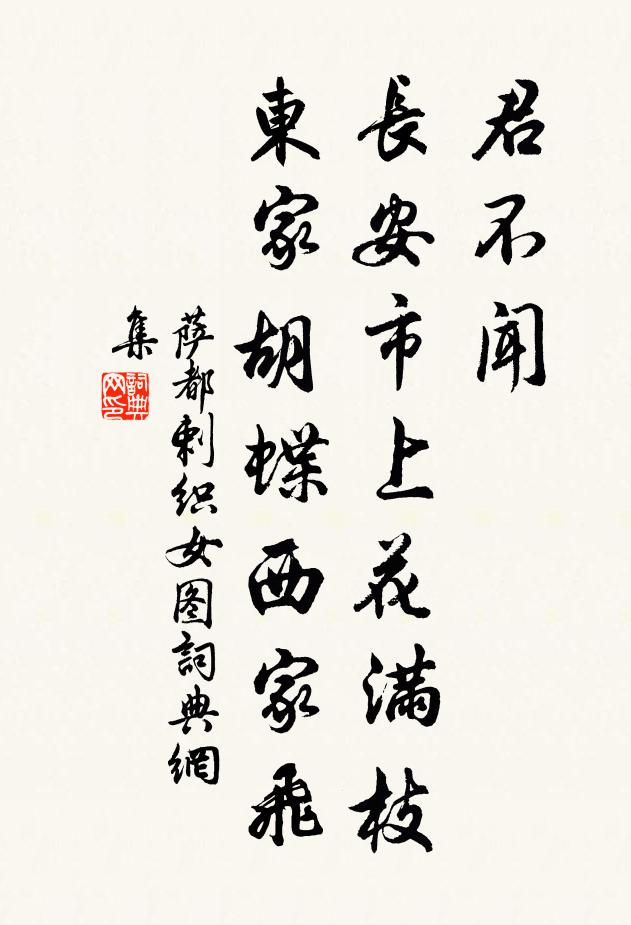 君不闻
長安市上花满枝
東家胡蝶西家飛
萨都剌织女图詞典網
集
詞典网印